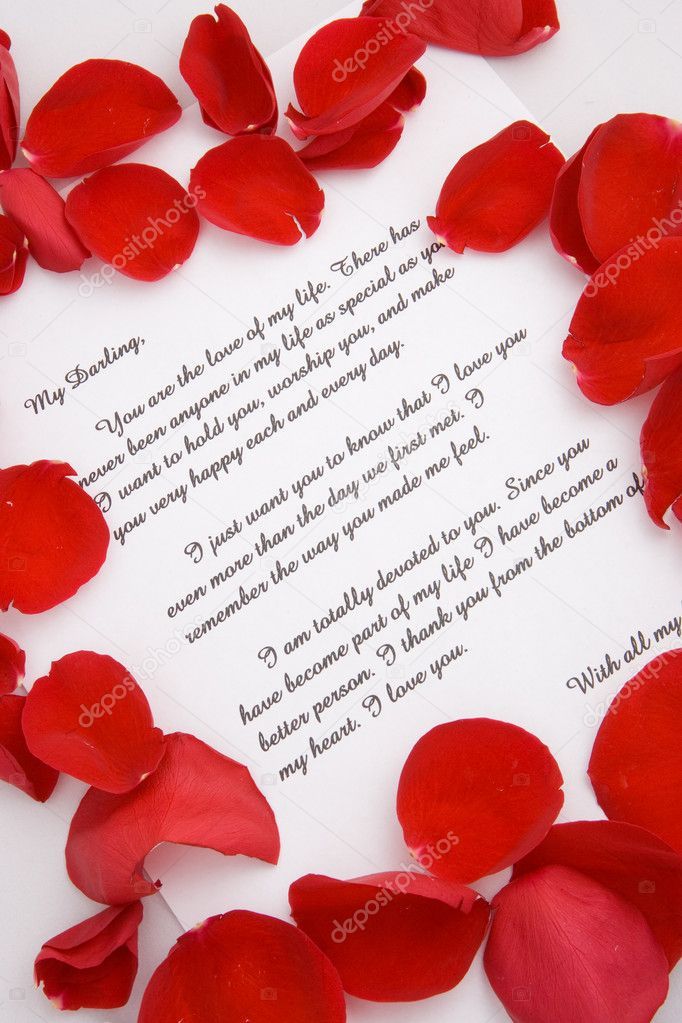 My Darling,
You are the love of my life. There has
never been anyone in my life as special as you
I want to hold you, worship you, and make
you very happy each and every day.
I just want you to know that I love you
even more than the day we first met. I
remember the way you made me feel.
I am totally devoted to you. Since you
have become part of my life I have become a
better person. I thank you from the bottom of
my heart. I love you.
With all my
depositphotos
depositphotos
depositphotos
depositphotos
depositphotos
depositphotos